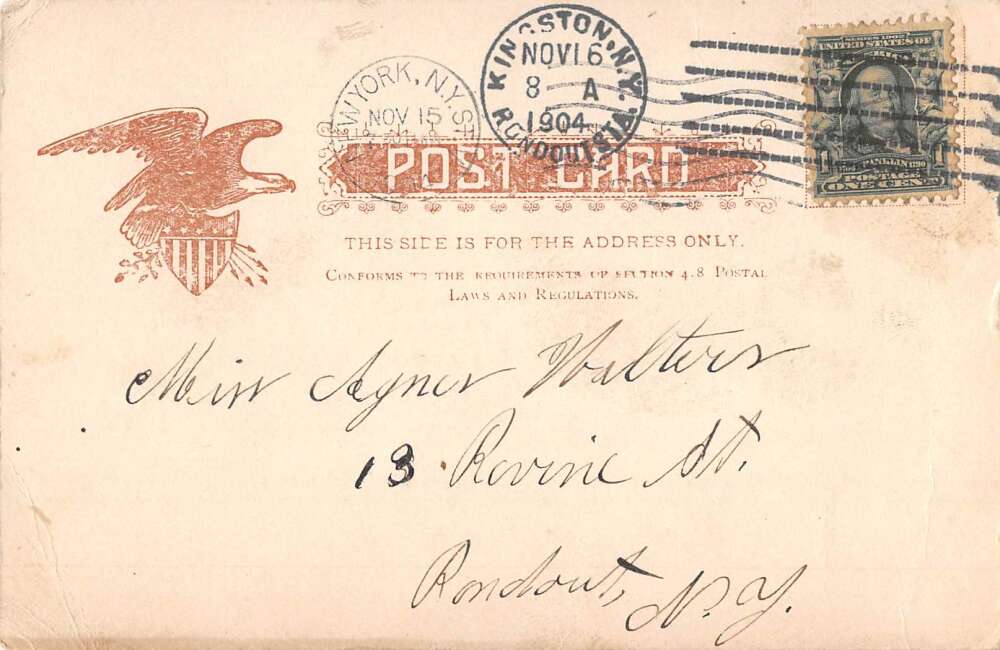 KINGSTON, N.Y.
NOV 16
8 A
1904
RONDOUT STA.
YORK, N.Y.
NOV 15
SERIES 1902
UNITED STATES OF
AMERICA
FRANKLIN 1790
POSTAGE
1 ONE CENT 1
POST CARD
THIS SIDE IS FOR THE ADDRESS ONLY.
CONFORMS TO THE REQUIREMENTS OF SECTION 4.8 POSTAL
LAWS AND REGULATIONS.
Miss Agnes Walters
13 Rovine St.
Rondout, N.Y.